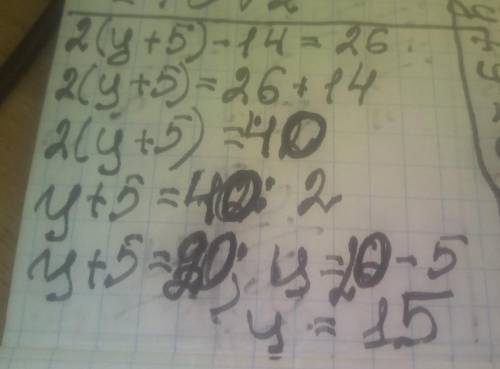 2(y+5)-14=26
2(y+5)=26+14
2(y+5)=40
y+5=40:2
y+5=20; y=20-5
y=15